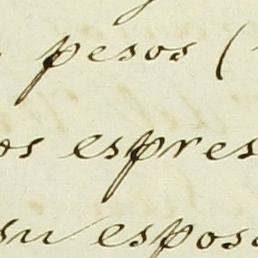 pesos (
os espres
su espos